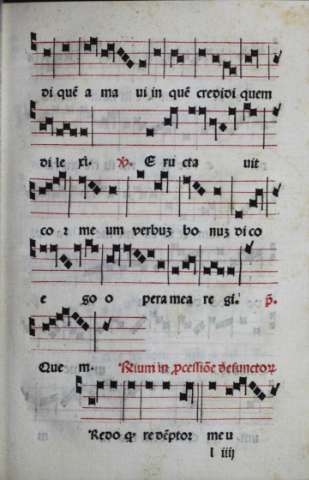 di quē a ma ui in quē credidi quem
di le xi. ℣. E ru cta uit
co ꝛ me um verbuꝫ bo nuꝫ di co
e go o pera mea re gi. p̄.
Que m. Rſium in ꝓceſſiōe defunctoꝝ
Redo ꝙ redēptor meu
l iiij